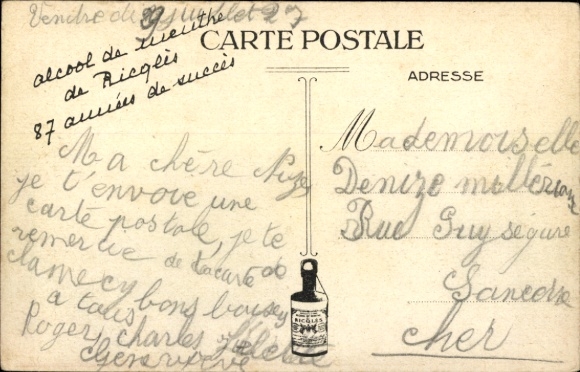 Vendredi 29 Juillet 27
alcool de menthe
de Ricqlès
87 années de succès
CARTE POSTALE
ADRESSE
Ma chère
je t'envoie une
carte postale, je te
remercie de ta carte de
clamecy bons baisers
a tous
Roger, charles
Genevieve
RICQLES
Mademoiselle
Denize
Rue Puy ségure
Sancerre
Cher